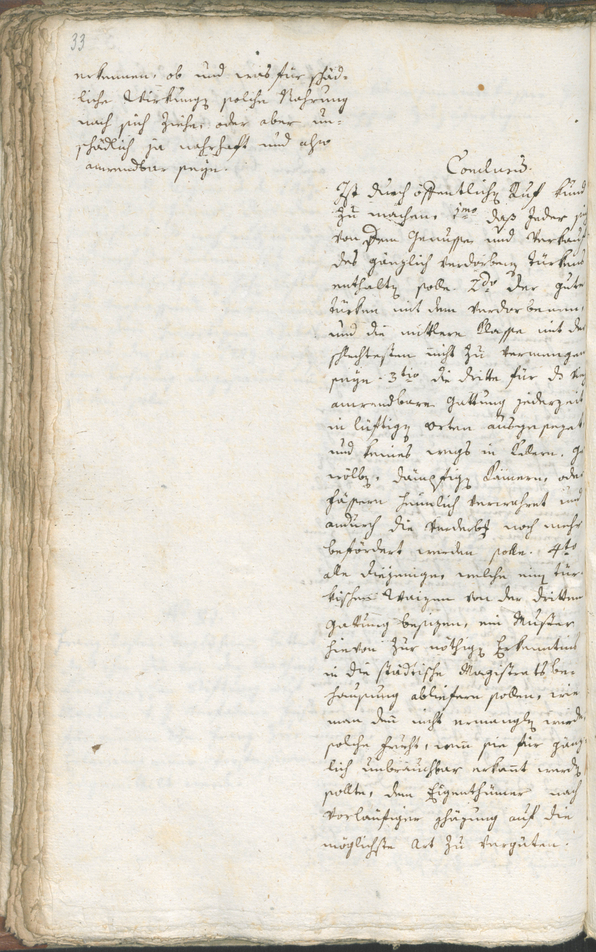 33
erkennen, ob und was für schäd-
liche Wirkung solche Nahrung
nach sich ziehe, oder aber un-
schädlich ja nahrhaft und also
anwendbar seye.
Conclusum.
Ist durch öffentlichen Ruf kund
zu machen, 1mo daß Jeder
von dem Genusse und Verkauf
des gänzlich verdorbenen Türken
enthalten solle. 2do der gute
Türken mit dem verdorbenen,
und die mittlere Klasse mit der
schlechtesten nicht zu vermengen
seye. 3tio die dritte für
anwendbare Gattung jederzeit
in luftigen Orten ausgesezet
und keines wegs in Kellern, ge-
wölben, dämpfigen Kamern, oder
fässern heimlich verwahret und
andurch die Verderbung noch mehr
befördert werden solle. 4to
alle diejenige, welche einen tür-
kischen Waizen von der dritten
Gattung besizen, ein Muster
hievon zur nöthigen Erkenntnis
in die städtische Magistrats be-
hausung abliefern sollen, wie
man denn nicht ermanglen wird,
solche frucht, wenn sie für gänz-
lich unbrauchbar erkannt werden
sollte, dem Eigenthümer nach
vorläufiger schäzung auf die
möglichste Art zu vergüten.